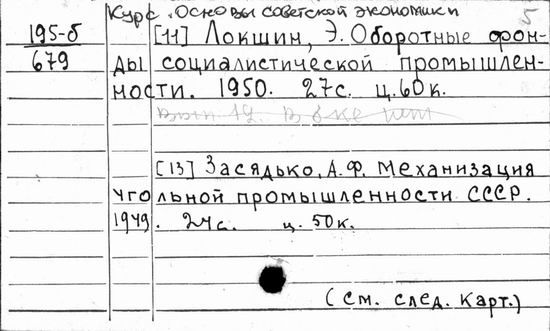 Курс. Основы советской экономики 5
195-б
679
[11] Локшин, Э. Оборотные фон-
ды социалистической промышлен-
ности. 1950. 27с. ц. 60к.
вып 12. в 6ке нет
[13] Засядько, А.Ф. Механизация
угольной промышленности СССР.
1949. 24с. ц. 50к.
(см. след. карт.)